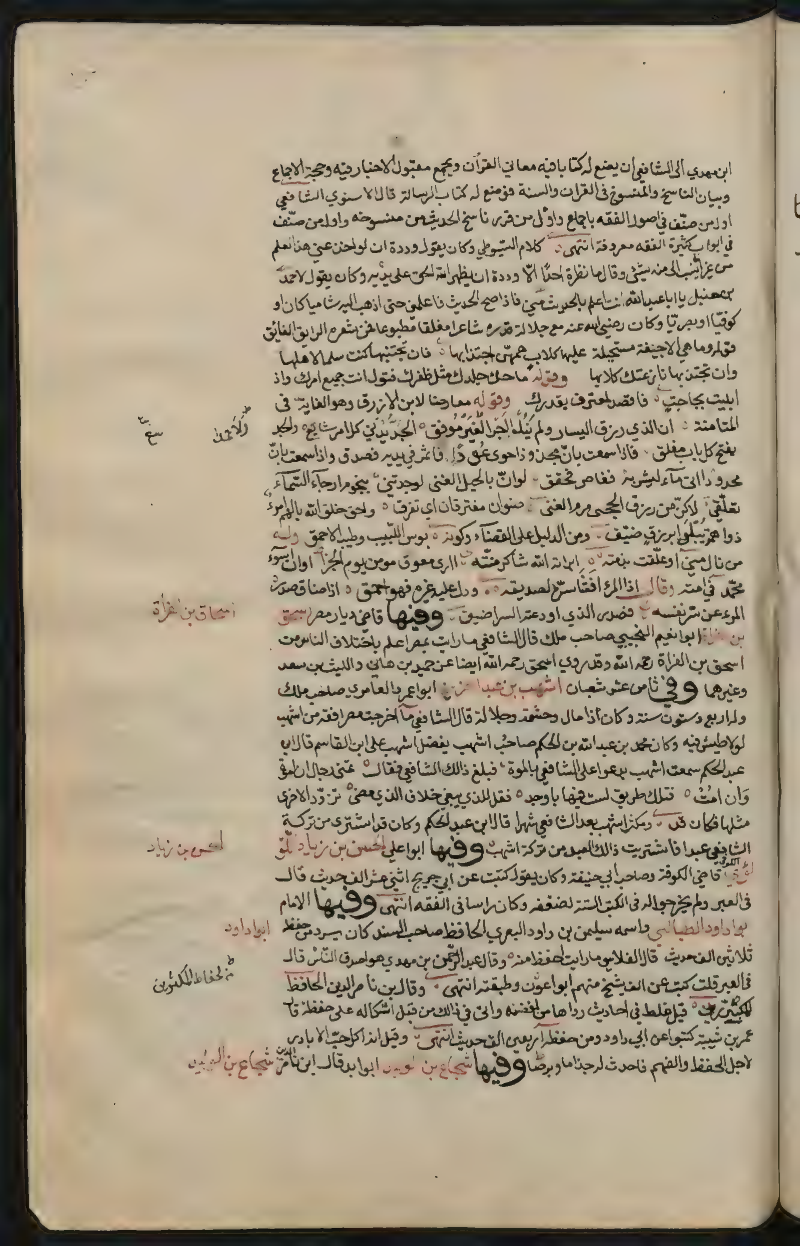 ابن مهدي الى الشافعي ان يضع له كتابا فيه معاني القرآن ويجمع مقبول الاخبار فيه وحجة الاجماع
وبيان الناسخ والمنسوخ في القران والسنة فوضع له كتاب الرسالة قال الاسنوي الشافعي
اول من صنّف في اصول الفقه باجماع واوّل من قرر ناسخ الحديث من منسوخه واول من صنّف
في ابواب كثيرة الفقه معروفة انتهى كلام السيوطي وكان يقول وددة ان لو اخذ عني هذا العلم
من غير ان ينسب الي منه شيئ وقال ما نظرة احدًا الا وددة ان يظهر الله الحق على يديه وكان يقول لاحمد
بن حنبل يا ابا عبد الله انت اعلم بالحديث منّي فاذا صح الحديث فاعلمني حتى اذهب اليه شاميا كان او
كوفيّا او بصريّا وكان رضي الله عنه مع جلالة قدره شاعرا مفلقا مطبوعا فمن شعره الرايق الفايق
قوله وما هي الا جيفة مستحيلة عليها كلاب همهنّ اجتذابها فان تجتنبها كنت سلما لاهلها
وان تجتذبها نازعتك كلابها وقوله ما حك جلدك مثل ظفرك فتول انت جميع امرك واذ
ابليت بحاجتٍ فاقصد لمعترف بقدرك وقوله معارضا لابن الازرق وهو الغاية في
المتانة ان الذي رزق اليسار ولم يَنَل اجرًا لغير موفق الجَدّ يُدني كل امر شايع والجد
يفتح كل باب مغلق فاذا سمعت بانّ مجدودا حوى عُودًا فاثمر في يديه فصدق واذا سمعت بانّ
محدودًا اتى ماء ليشربه فغاص فحقق لو انّ بالحيل الغنى لوجدتني بنجوم ارجاء السّماء
تعلّقي لاكنّ من رزق الحجى حرم الغنى ضدان مفترقان اي تفرق واحق خلق الله بالهم امرء
ذو همّة يُبلى برزق ضيّف ومن الدليل على القضاء وكونه بوس اللبيب وطيب الاحمق وله
من نال منّي او علقت بذمته ابرأته لله شاكر منّته اارى معوق مومن يوم الجزا او ان أسوء
محمّد في امته وقال اذا المرء افشا سرّه لصديقه ودل عليه غيره فهو احمق اذا ضاق صدر
المرء عن سر نفسه فصدر الذي اودعته السر اضيق وفيها قاضي ديار مصر اسحق
بن الفراة ابو نعيم التجيبي صاحب ملك قال الشافعي ما رايت بمصر اعلم باختلاف الناس من
اسحق بن الفراة رحمه الله وقد روى اسحق رحمه الله ايضا عن حميد بن هاني والليث بن سعد
وغيرهما وفي ثامن عشر شعبان اشهب بن عبد العزيز ابو عمرو العامري صاحب ملك
وله اربع وستون سنة وكان ذا مال وحشمة وجلالة قال الشافعي ما اخرجت مصر افقه من اشهب
لولا طيش فيه وكان محمد بن عبد الله بن الحكم صاحب اشهب يفضل اشهب على ابن القاسم قال ابن
عبد الحكم سمعت اشهب يدعو على الشافعي بالموة فبلغ ذالك الشافعي فقال تمنى رجال ان اموة
وان امُتْ فتلك طريق لست فيها باوحد فقل للذي يبغي خلاف الذي مضى تزوّد لاخرى
مثلها فكان قد ومكث اشهب بعد الشافعي شهرا قال ابن عبد الحكم وكان قد اشترى من تركة
الشافعي عبدا فاشتريت ذالك العبد من تركة اشهب وفيها ابو علي الحسن بن زياد اللؤ
لؤي الكوفي قاضي الكوفة وصاحب ابي حنيفة وكان يقول كتبت عن ابن جريج اثني عشر الف حديث قال
في العبر ولم يخرجوا له في الكتب الستة لضعفه وكان راسا في الفقه انتهى وفيها الامام
ابو داود الطيالسي واسمه سليمن بن داود البصري الحافظ صاحب المسند كان يسرد من حفظه
ثلاثين الف حديث قال الفلاس ما رايت احفظ منه وقال عبد الرّحمن بن مهدي هو اصدق النّاس قال
في العبر قلت كتب عن الف شيخ منهم ابو عون وطبقته انتهى وقال بن ناصر الدين الحافظ
المكثرين قيل غلط في احاديث رواها من حفظه واتى في ذالك من قبل اتكاله على حفظه قال
عمر بن شبة كتبوا عن ابي داود من حفظه اربعين الف حديث انتهى وقيل انه اكل حب البلادر
لاجل الحفظ والفهم فاحدث له جذاما وبرصًا وفيها شجاع بن الوليد ابو ابدر قال ابن ناصر الدين
اسحاق بن الفراة
الحسن بن زياد
ابو داود
من الحفاظ المكثرين
شجاع بن الوليد